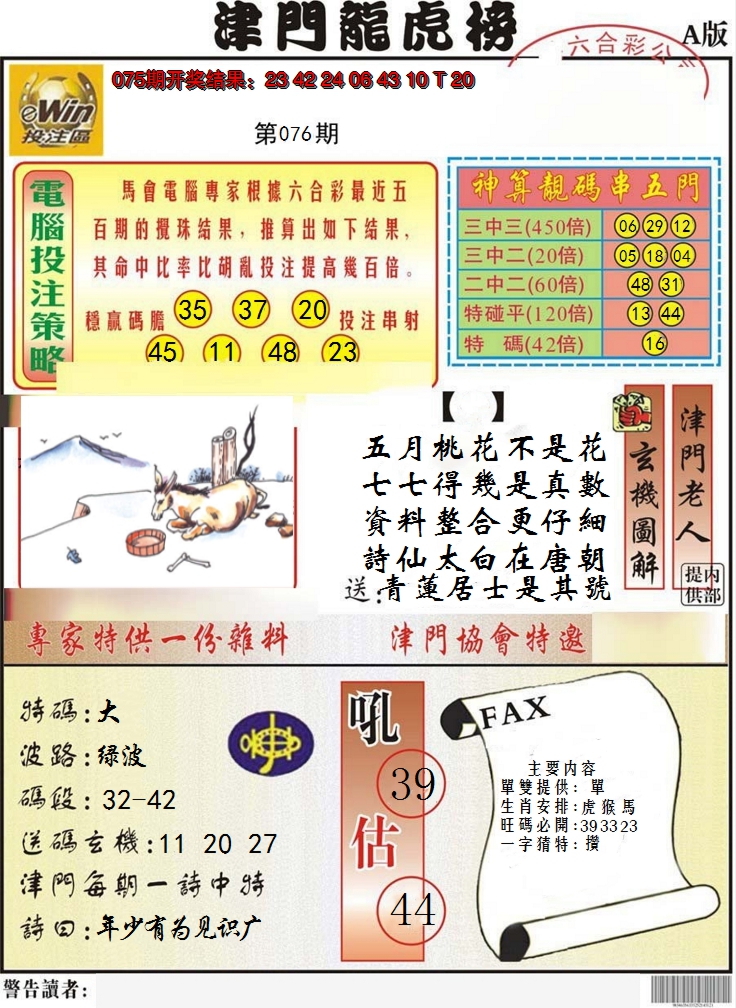 津門龍虎榜
六合彩公
A版
eWin
投注區
075期开奖结果：23 42 24 06 43 10 T 20
第076期
電腦投注策略
馬會電腦專家根據六合彩最近五
百期的攪珠结果，推算出如下结果，
其命中比率比胡亂投注提高幾百倍。
穩贏碼膽 35 37 20 投注串射
45 11 48 23
神算靚碼串五門
三中三(450倍) 06 29 12
三中二(20倍) 05 18 04
二中二(60倍) 48 31
特碰平(120倍) 13 44
特 碼(42倍) 16
【 】
五月桃花不是花
七七得幾是真數
資料整合更仔細
詩仙太白在唐朝
送：青蓮居士是其號
玄機圖解
津門老人
内部提供
專家特供一份雜料
津門協會特邀
特碼:大
波路:绿波
碼段:32-42
送碼玄機:11 20 27
津門每期一詩中特
詩曰:年少有为见识广
吼
39
估
44
FAX
主要内容
單雙提供:單
生肖安排:虎猴馬
旺碼必開:393323
一字猜特:攢
警告讀者：